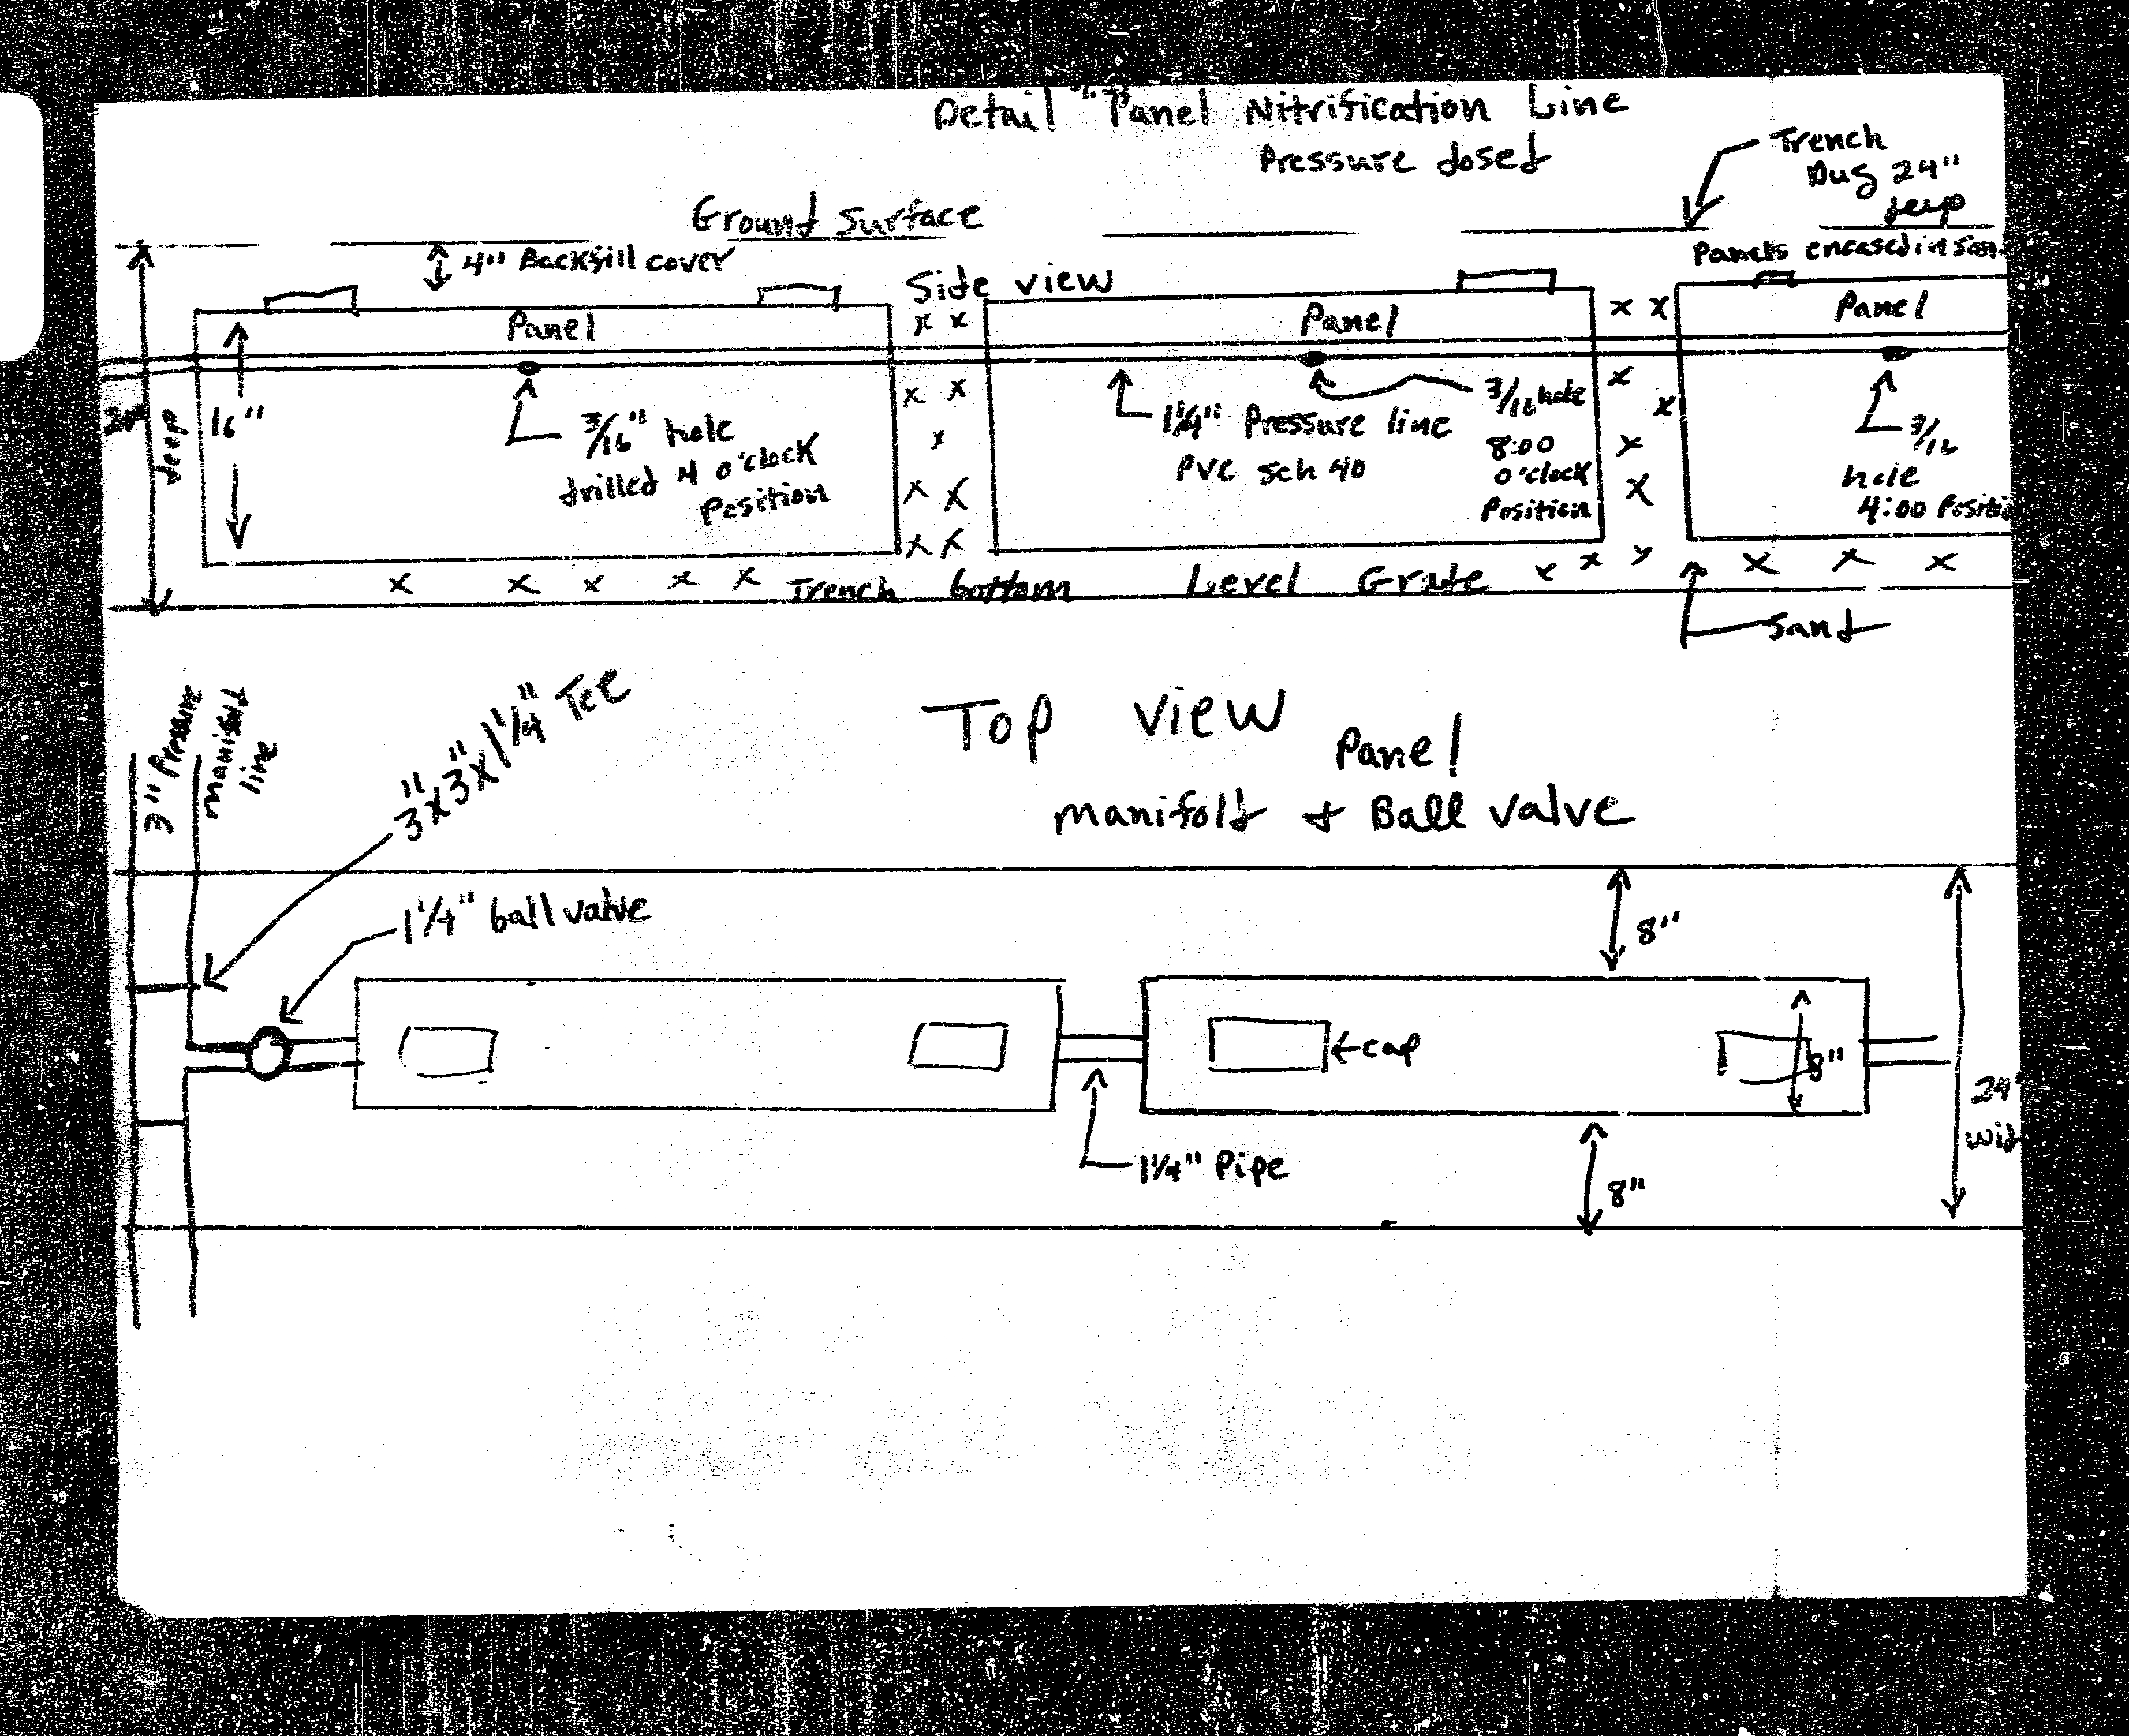 Detail Panel Nitrification Line
Pressure dosed
Trench
Dug 24"
deep
Ground Surface
4" Backfill cover
Panels encased in San
Side view
Panel
Panel
Panel
24"
deep
16"
3/16" hole
drilled 4 o'clock
Position
1 1/4" Pressure line
PVC Sch 40
3/16 hole
8:00
o'clock
Position
3/16
hole
4:00 Positi
Trench bottom Level Grade
Sand
3" Pressure
manifold
line
3"x3"x1 1/4" Tee
Top view
Panel
manifold + Ball valve
1 1/4" ball valve
8"
cap
8"
24"
wid
1 1/4" Pipe
8"